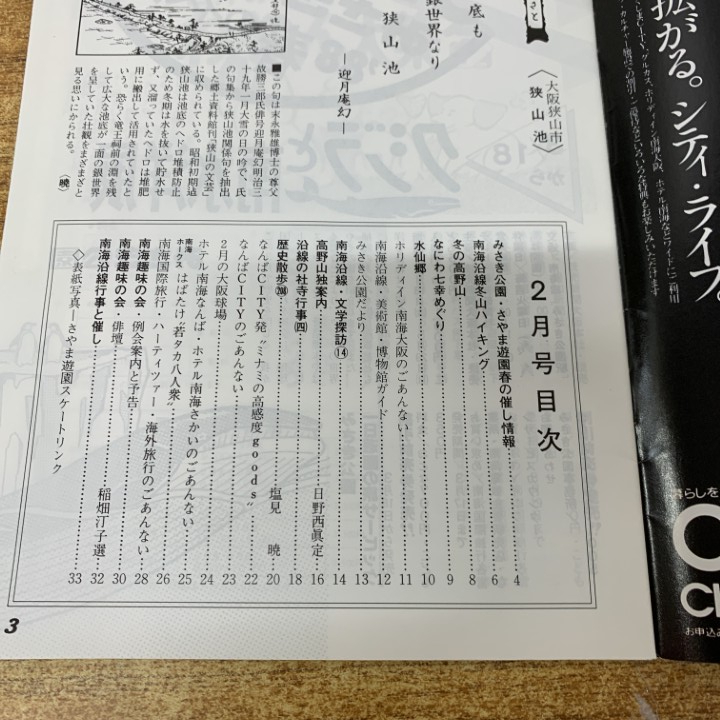 拡がる。シティ・ライフ
さと
〈大阪狭山市
狭山池〉
底も
銀世界なり
狭山池
―迎月庵幻―
■この句は末永雅雄博士の尊父
故勝三郎氏俳号迎月庵幻明治三
十九年一月大雪の日の吟で、氏
の句集から狭山池関係句を抽出
した郷土資料館刊『狭山の文芸』
に収められている。昭和初期迄
狭山池は池底のヘドロ堆積防止
のため冬期は水を抜いて貯水せ
ず、又溜っていたヘドロは堆肥
用に搬出して活用されていたと
いう。恐らく竜王祠前の淵を残
して広大な池底が一面の銀世界
を呈していた壮観をまざまざと
見る思いにかられる。
(暁)
2月号目次
みさき公園・さやま遊園春の催し情報 4
南海沿線冬山ハイキング 6
冬の高野山 8
なにわ七幸めぐり 9
水仙郷 10
ホリディイン南海大阪のごあんない 11
南海沿線・美術館・博物館ガイド 12
みさき公園だより 13
南海沿線・文学探訪⑭ 14
高野山独案内 日野西眞定 16
沿線の社寺行事(四) 18
歴史散歩 塩見 暁 20
なんばCITY発“ミナミの高感度goods” 22
なんばCITYのごあんない 23
2月の大阪球場 24
ホテル南海なんば・ホテル南海さかいのごあんない 24
南海ホークス はばたけ“若タカ八人衆” 25
南海国際旅行・ハーティツァー・海外旅行のごあんない 26
南海趣味の会・例会案内と予告 28
南海趣味の会・俳壇 稲畑汀子選 30
南海沿線行事と催し 32
◇表紙写真―さやま遊園スケートリンク 33
3
暮らしを
お申込み